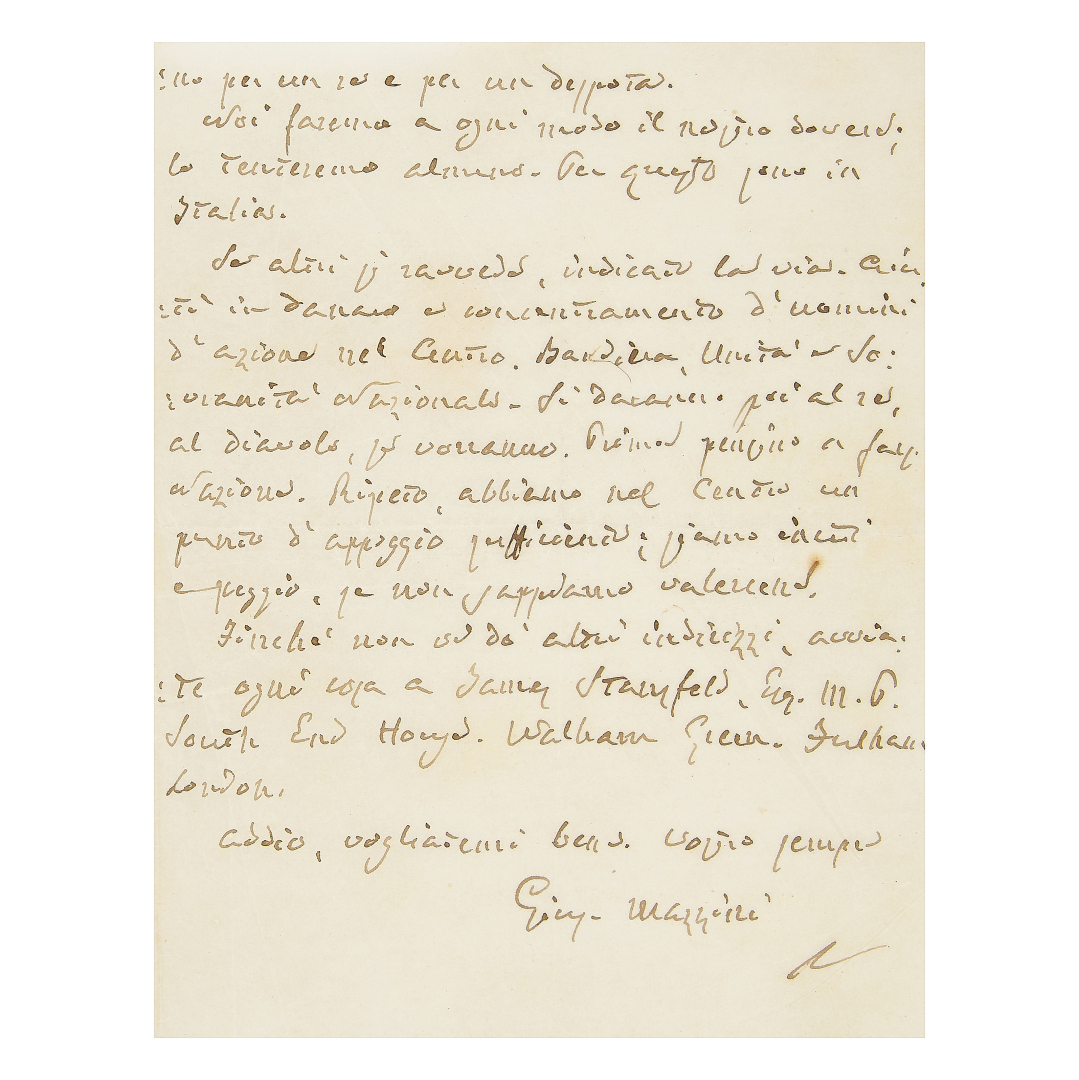 :no per un re e per un despota.
Noi faremo a ogni modo il nostro dovere;
lo tenteremo almeno. Per questo sono in
Italia.
Se altri si ravvede, indicate la via.
:ti in danaro e concentramento d'uomini
d'azione nel Centro. Bandiera, Unità e So:
:vranità Nazionale. Si daranno poi al re,
al diavolo, se vorranno. Primo pensino a far
Nazione. Ripeto, abbiamo nel Centro un
punto d'appoggio sufficiente; siamo inetti
e peggio, se non sappiamo valercene.
Finché non vi do' altri indirizzi, invia:
:te ogni cosa a James Stansfeld, Esq. M.P.
South End House. Walham Green. Fulham
London.
Addio, vogliatemi bene. Vostro sempre
Gius. Mazzini